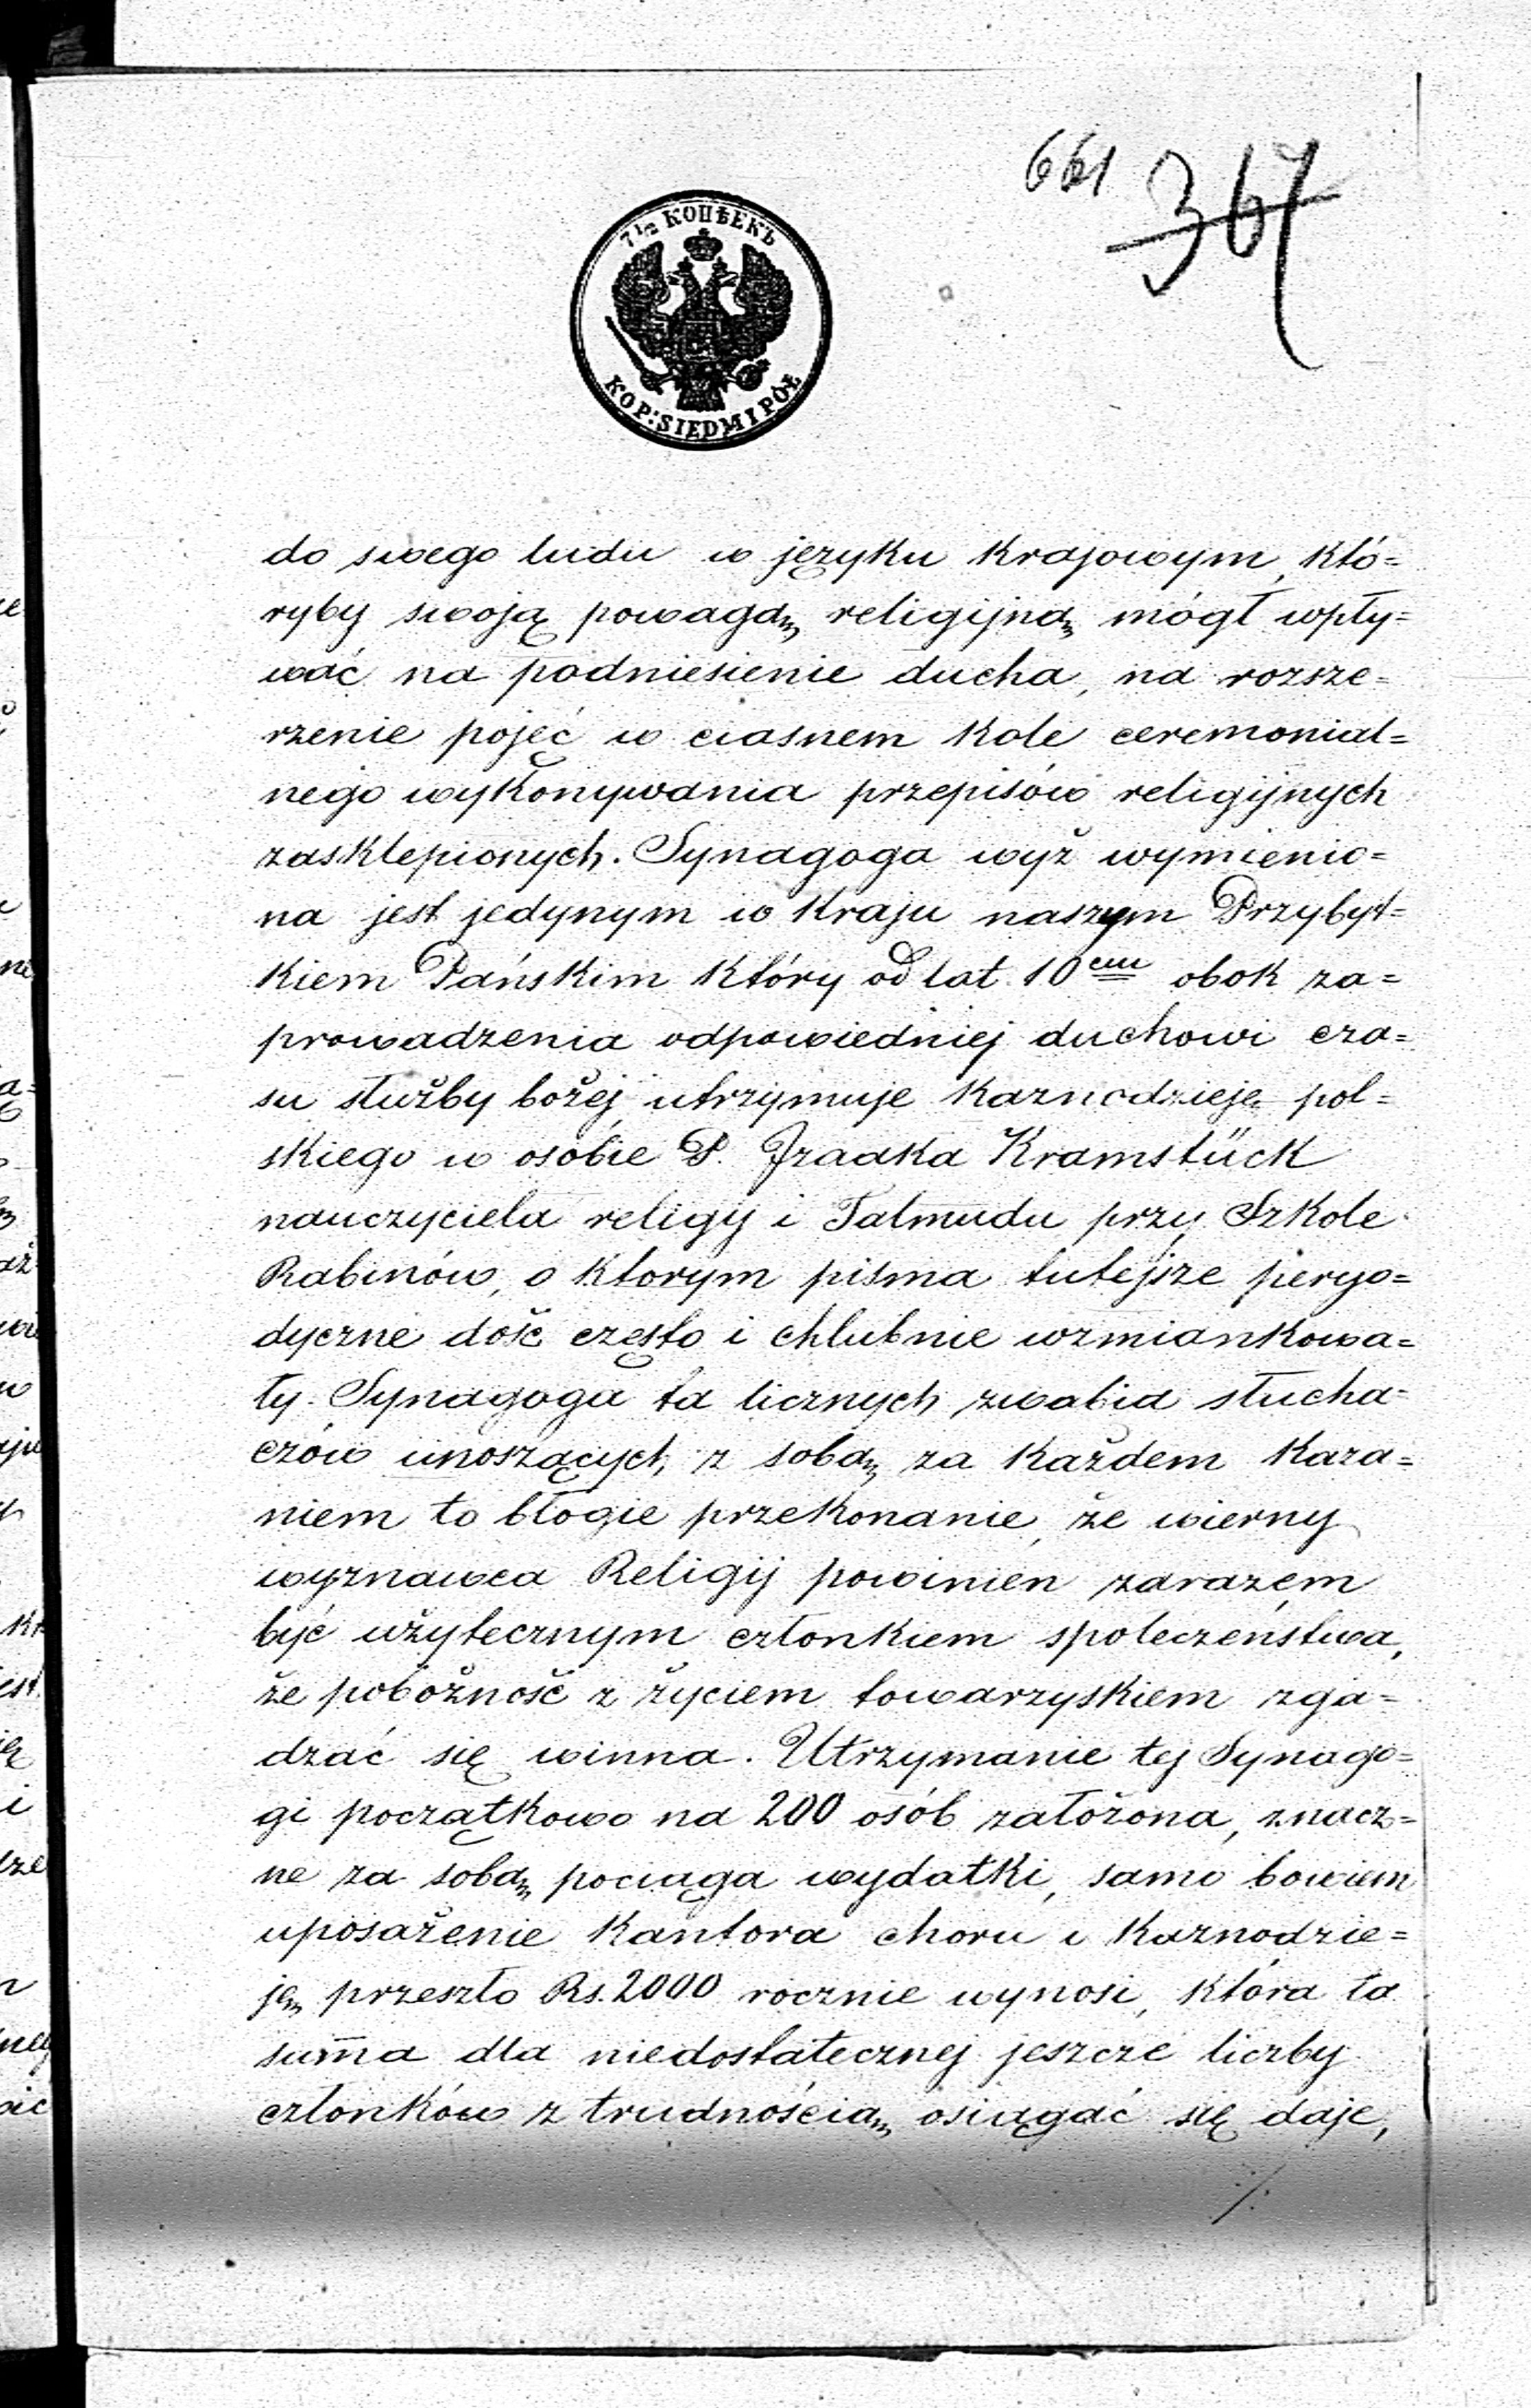 661 367
7 1/2 КОПѢЕКЪ
KOP: SIEDM I PÓŁ
do swego ludu w języku krajowym, któ=
ryby swoją powagą religijną mógł wpły=
wać na podniesienie ducha, na rozsze=
rzenie pojęć w ciasnem kole ceremonial=
nego wykonywania przepisów religijnych
zasklepionych. Synagoga wyż wymienio=
na jest jedynym w kraju naszym Przybyt=
kiem Pańskim który od lat 10ciu obok za=
prowadzenia odpowiedniej duchowi cza=
su służby bożej, utrzymuje kaznodzieję pol=
skiego w osobie P. Izaaka Kramstück
nauczyciela religij i Talmudu przy Szkole
Rabinów, o ktorym pisma tutejsze peryo=
dyczne dość często i chlubnie wzmiankowa=
ły. Synagoga ta licznych zwabia słucha=
czów unoszących z sobą za każdem kaza=
niem to błogie przekonanie, że wierny
wyznawca Religij powinien zarazem
być użytecznym członkiem społeczeństwa,
że pobożność z życiem towarzyskiem zga=
dzać się winna. Utrzymanie tej Synago=
gi początkowo na 200 osób założona, znacz=
ne za sobą pociąga wydatki, samo bowiem
uposażenie Kantora choru i Kaznodzie=
ję przeszło Rs. 2000 rocznie wynosi, która ta
sum̅a dla niedostatecznej jeszcze liczby
członków z trudnością osiągać się daje,
./.